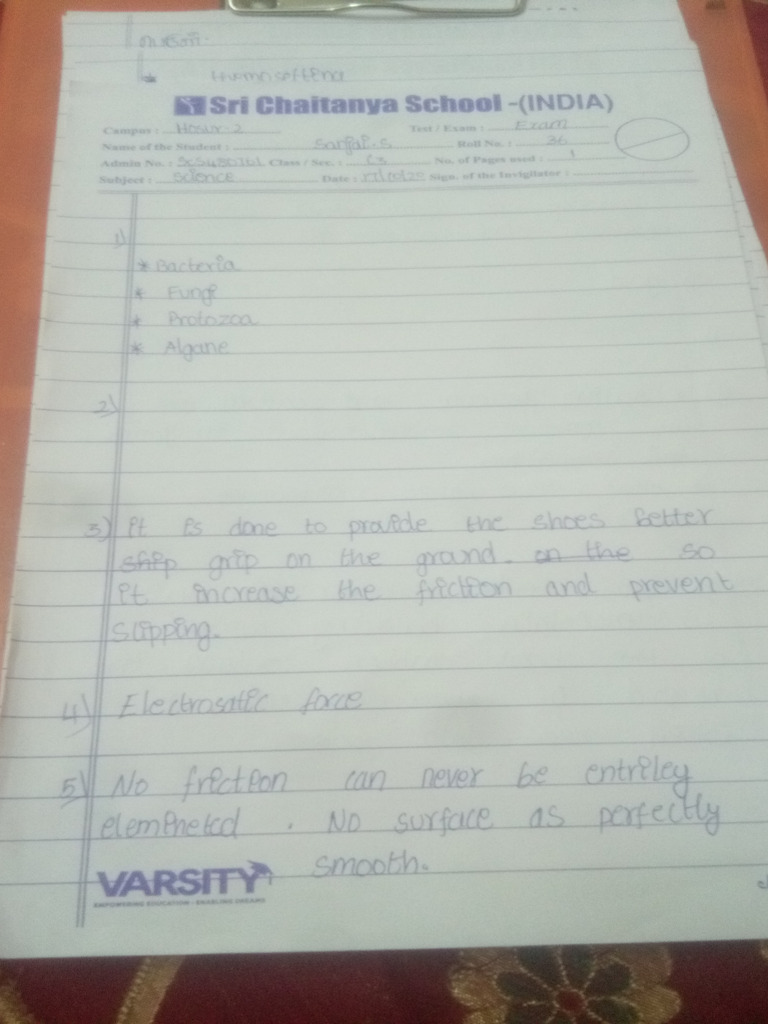 Thermosetting
Sri Chaitanya School -(INDIA)
Campus: Hosur-2 Test / Exam: Exam
Name of the Student: Roll No.: 36
Admin No.: Class / Sec.: No. of Pages used: 1
Subject: Science Date: Sign. of the Invigilator:
1)
* Bacteria
* Fungi
* Protozoa
* Algane
2)
3) It is done to provide the shoes better
grip on the grand. on the so
it increase the friction and prevent
slipping.
4) Electrosatic force
5) No friction can never be entriley
elemineted. No surface as perfectly
smooth.
VARSITY
EMPOWERING EDUCATION - ENABLING DREAMS